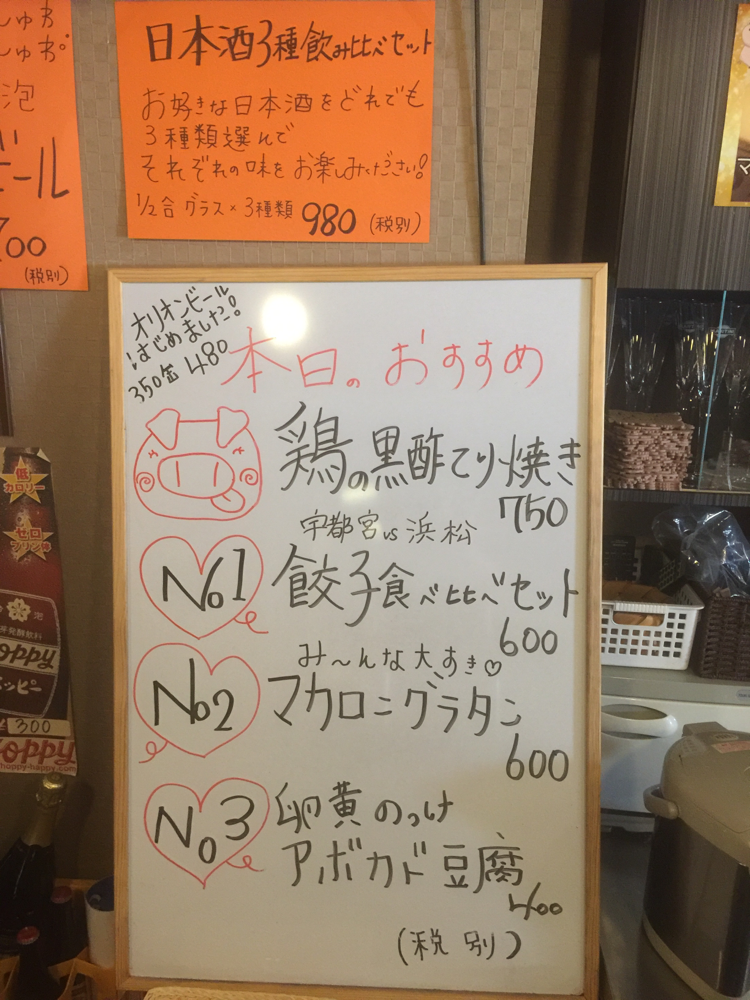 しゅわ
しゅわ。
泡
ビール
00
(税別)
日本酒3種飲み比べセット
お好きな日本酒をどれでも
3種類選んで
それぞれの味をお楽しみください!
1/2合 グラス×3種類 980 (税別)
オリオンビール
はじめました!
350缶 480
本日のおすすめ
鶏の黒酢てり焼き
750
宇都宮vs浜松
No1 餃子食べ比べセット
600
み〜んな大すき♡
No2 マカロニグラタン
600
No3 卵黄のっけ
アボカド豆腐
400
(税別)
低
カロリー
ゼロ
プリン体
HOPPY
ホッピー
¥300
HOPPY
hoppy-happy.com